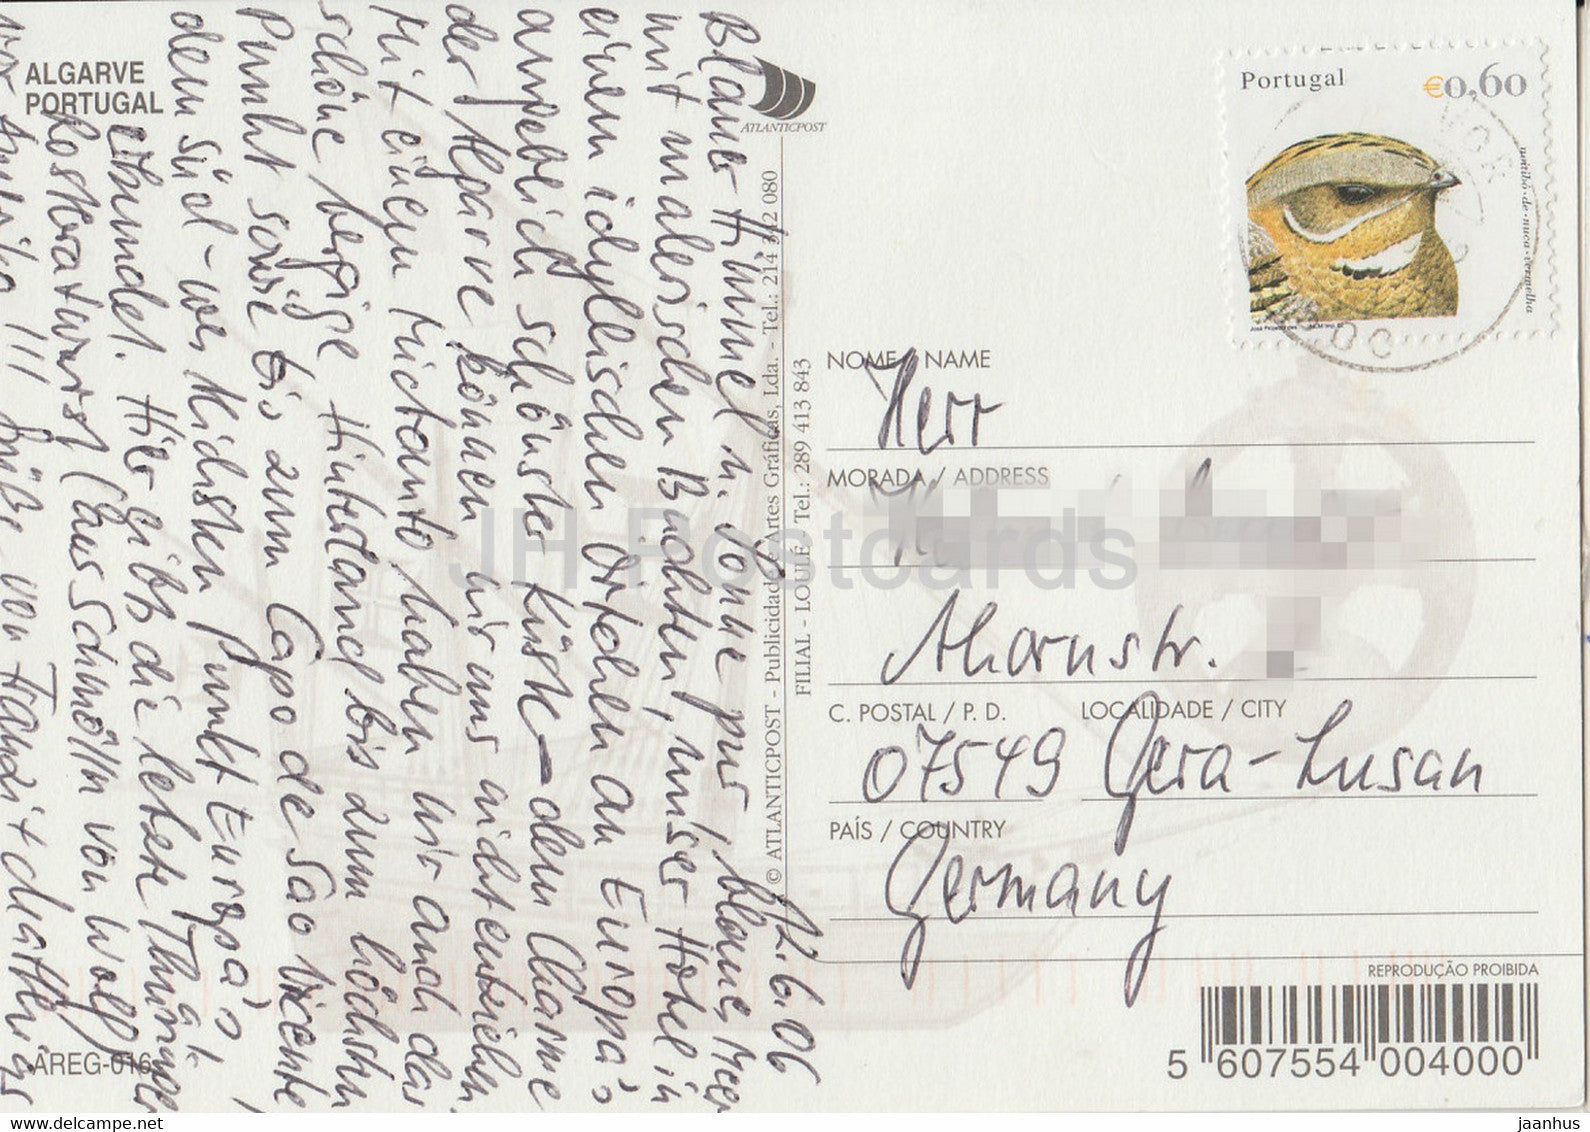 ALGARVE
PORTUGAL
ATLANTICPOST
12.6.06
Blauer Himmel u. Sonne pur, blaues Meer
mit malerischen Buchten, unser Hotel in
einem idyllischen Örtchen an Europa's
angeblich schönster Küste – dem Charme
der Algarve können wir uns nicht entziehen.
Mit einem Mietauto haben wir auch das
schöne bergige Hinterland bis zum höchsten
Punkt sowie bis zum Capo de Sao Vicente,
dem süd-westlichsten Punkt Europa's,
erkundet. Hier gibts die letzte Thüringer
Rostbratwurst (aus Schmölln von Wolf)
vor Amerika !!! Grüße von
© ATLANTICPOST - Publicidade e Artes Gráficas, Lda. - Tel.: 214 342 080
FILIAL - LOULÉ Tel.: 289 413 843
AREG-016
Portugal
€0,60
noitibó-de-nuca-vermelha
NOME / NAME
Herr
MORADA / ADDRESS
Ahornstr.
C. POSTAL / P. D.
LOCALIDADE / CITY
07549 Gera-Lusan
PAÍS / COUNTRY
Germany
REPRODUÇÃO PROIBIDA
5 607554 004000
JH Postcards
www.delcampe.net
jaanhus